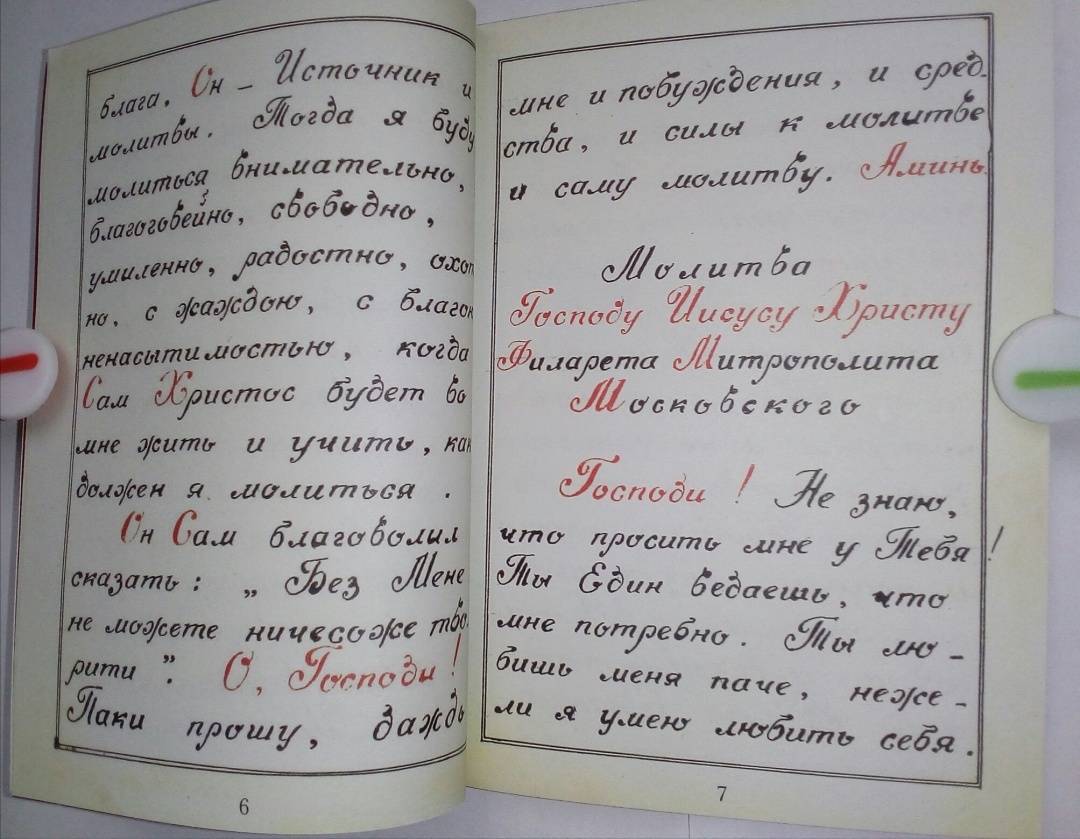 блага. Он – Источник и
молитвы. Тогда я буду
молиться внимательно,
благоговейно, свободно,
умиленно, радостно, охот
но, с жаждою, с благон
ненасытимостью, когда
Сам Христос будет во
мне жить и учить, как
должен я молиться.
Он Сам благоволил
сказать: „Без Мене
не можете ничесоже тво
рити”. О, Господи!
Паки прошу, даждь
6
мне и побуждения, и сред-
ства, и силы к молитве
и саму молитву. Аминь.
Молитва
Господу Иисусу Христу
Филарета Митрополита
Московского
Господи! Не знаю,
что просить мне у Тебя!
Ты Един ведаешь, что
мне потребно. Ты лю-
бишь меня паче, неже-
ли я умею любить себя.
7